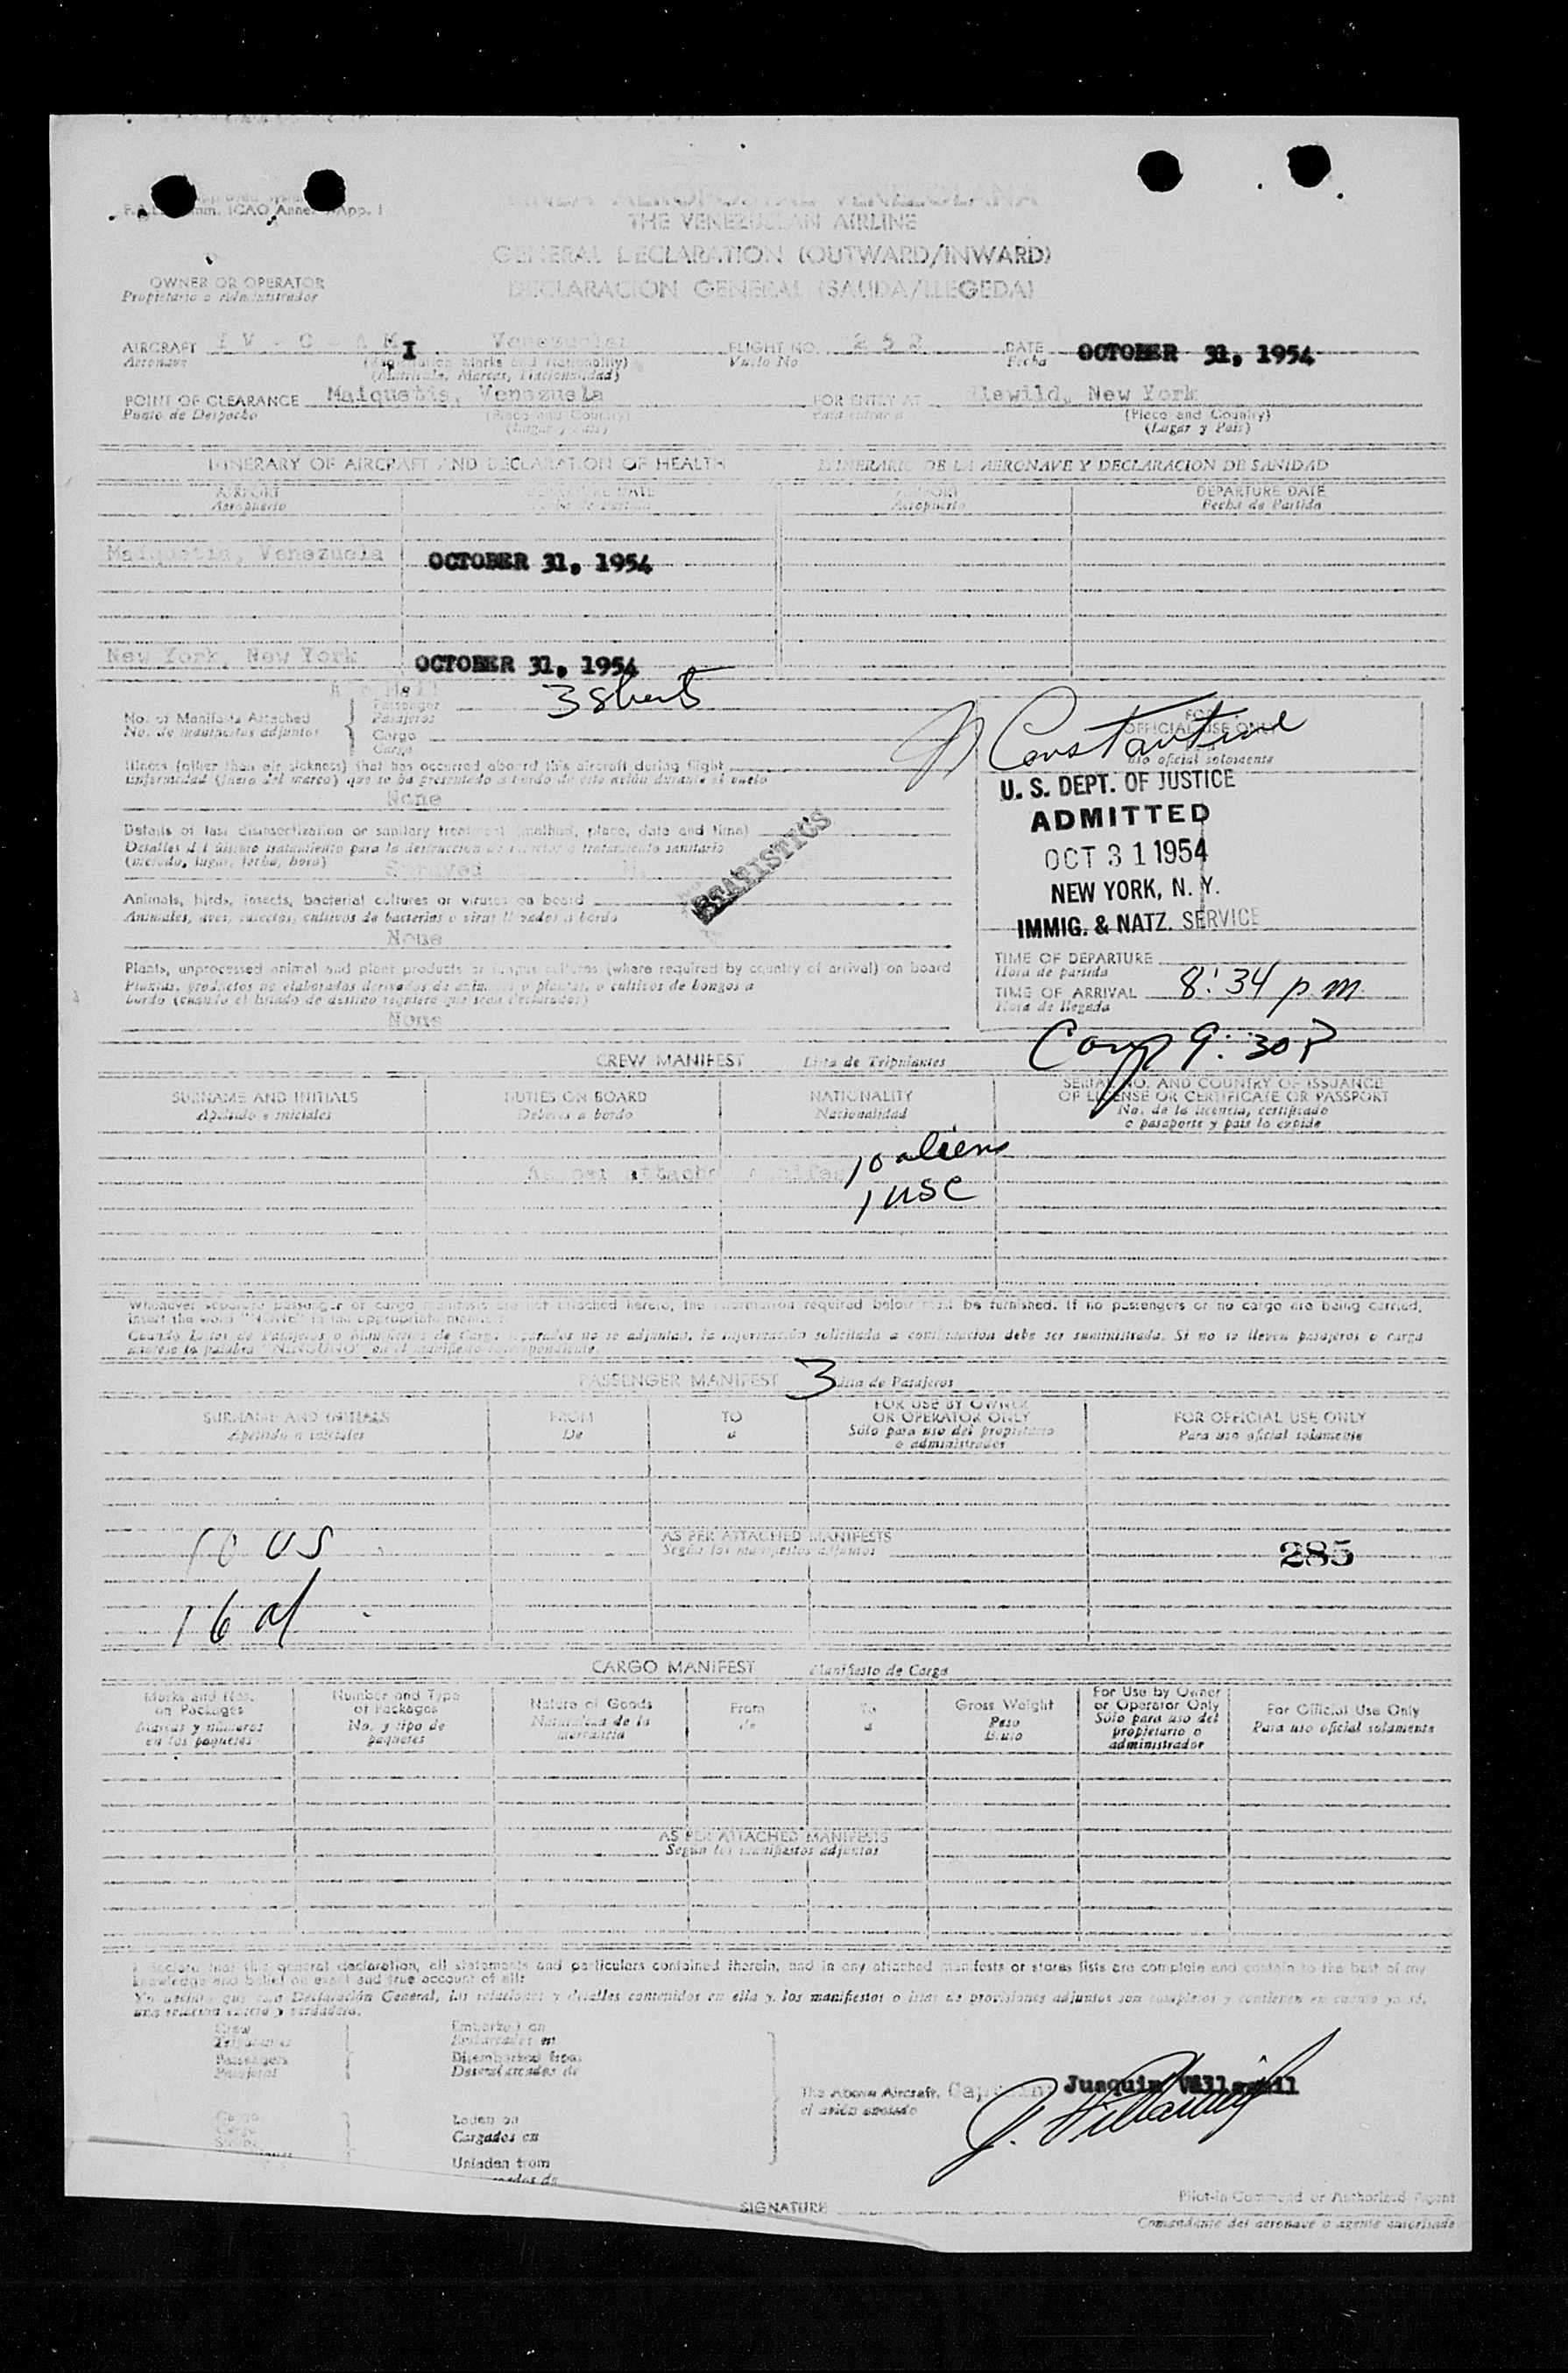 THE VENEZUELAN AIRLINE
GENERAL DECLARATION (OUTWARD/INWARD)
DECLARACION GENERAL (SALIDA/LLEGEDA)
OWNER OR OPERATOR
Propietario o Administrador
AIRCRAFT Y V - C - A M I Venezuelan FLIGHT NO. 252 DATE OCTOBER 31, 1954
Aeronave Vuelo No Fecha
(Matricula, Marcas, Nacionalidad)
POINT OF CLEARANCE Maiquetia, Venezuela FOR ENTRY AT Idlewild, New York
Punto de Despacho (Place and Country) Para entrar a (Place and Country)
(Lugar y Pais) (Lugar y Pais)
ITINERARY OF AIRCRAFT AND DECLARATION OF HEALTH ITINERARIO DE LA AERONAVE Y DECLARACION DE SANIDAD
AIRPORT DEPARTURE DATE AIRPORT DEPARTURE DATE
Aeropuerto Fecha de Partida Aeropuerto Fecha de Partida
Maiquetia, Venezuela OCTOBER 31, 1954
New York, New York OCTOBER 31, 1954
No. of Manifests Attached Passenger 3 sheets
No. de manifiestos adjuntos Pasajeros
Cargo
Carga
FOR
OFFICIAL USE ONLY
uso oficial solamente
Constantine
Illness (other than air sickness) that has occurred aboard this aircraft during flight
None
U. S. DEPT. OF JUSTICE
ADMITTED
OCT 31 1954
NEW YORK, N. Y.
IMMIG. & NATZ. SERVICE
Details of last disinsectization or sanitary treatment (method, place, date and time)
Detalles del último tratamiento para la destruccion de insectos o tratamiento sanitario
(método, lugar, fecha, hora) Sprayed
STATISTICS
Animals, birds, insects, bacterial cultures or viruses on board
Animales, aves, insectos, cultivos de bacterias o virus llevados a bordo
None
Plants, unprocessed animal and plant products or fungus cultures (where required by country of arrival) on board
Plantas, productos no elaborados derivados de animales o plantas, o cultivos de hongos a
bordo (cuando el Estado de destino requiera que sean declarados)
None
TIME OF DEPARTURE
Hora de partida
TIME OF ARRIVAL 8:34 p.m.
Hora de llegada
Comp 9:30P
CREW MANIFEST Lista de Tripulantes
SURNAME AND INITIALS DUTIES ON BOARD NATIONALITY SERIAL NO. AND COUNTRY OF ISSUANCE
Apellido e iniciales Deberes a bordo Nacionalidad OF LICENSE OR CERTIFICATE OR PASSPORT
No. de la licencia, certificado
o pasaporte y pais lo expide
As per attached manifest 10 aliens
1 USC
Whenever separate passenger or cargo manifests are not attached hereto, the information required below must be furnished. If no passengers or no cargo are being carried,
insert the word "NONE" in the appropriate manifest.
Cuando Listas de Pasajeros o Manifiestos de Carga separados no se adjuntan, la información solicitada a continuacion debe ser suministrada. Si no se llevan pasajeros o carga
anótese la palabra "NINGUNO" en el manifiesto correspondiente.
PASSENGER MANIFEST 3 Lista de Pasajeros
SURNAME AND INITIALS FROM TO FOR USE BY OWNER FOR OFFICIAL USE ONLY
Apellido e iniciales De a OR OPERATOR ONLY Para uso oficial solamente
Sólo para uso del propietario
o administrador
10 US AS PER ATTACHED MANIFESTS 285
Según los manifiestos adjuntos
16 al
CARGO MANIFEST Manifiesto de Carga
Marks and Nos. Number and Type Nature of Goods From To Gross Weight For Use by Owner For Official Use Only
on Packages of Packages Naturaleza de la de a Peso or Operator Only Para uso oficial solamente
Marcas y números No. y tipo de mercancia Bruto Sólo para uso del
en los paquetes paquetes propietario o
administrador
AS PER ATTACHED MANIFESTS
Según los manifiestos adjuntos
I declare that this general declaration, all statements and particulars contained therein, and in any attached manifests or stores lists are complete and contain to the best of my
knowledge and belief an exact and true account of all:
Crew Embarked on
Tripulantes Embarcados en
Passengers Disembarked from
Pasajeros Desembarcados de
The Above Aircraft. Captain: Juaquim Villamil
el avión anotado
J. Villamil
Cargo Laden on
Carga Cargados en
Unladen from
SIGNATURE
Pilot-in-Command or Authorized Agent
Comandante del aeronave o agente autorizado